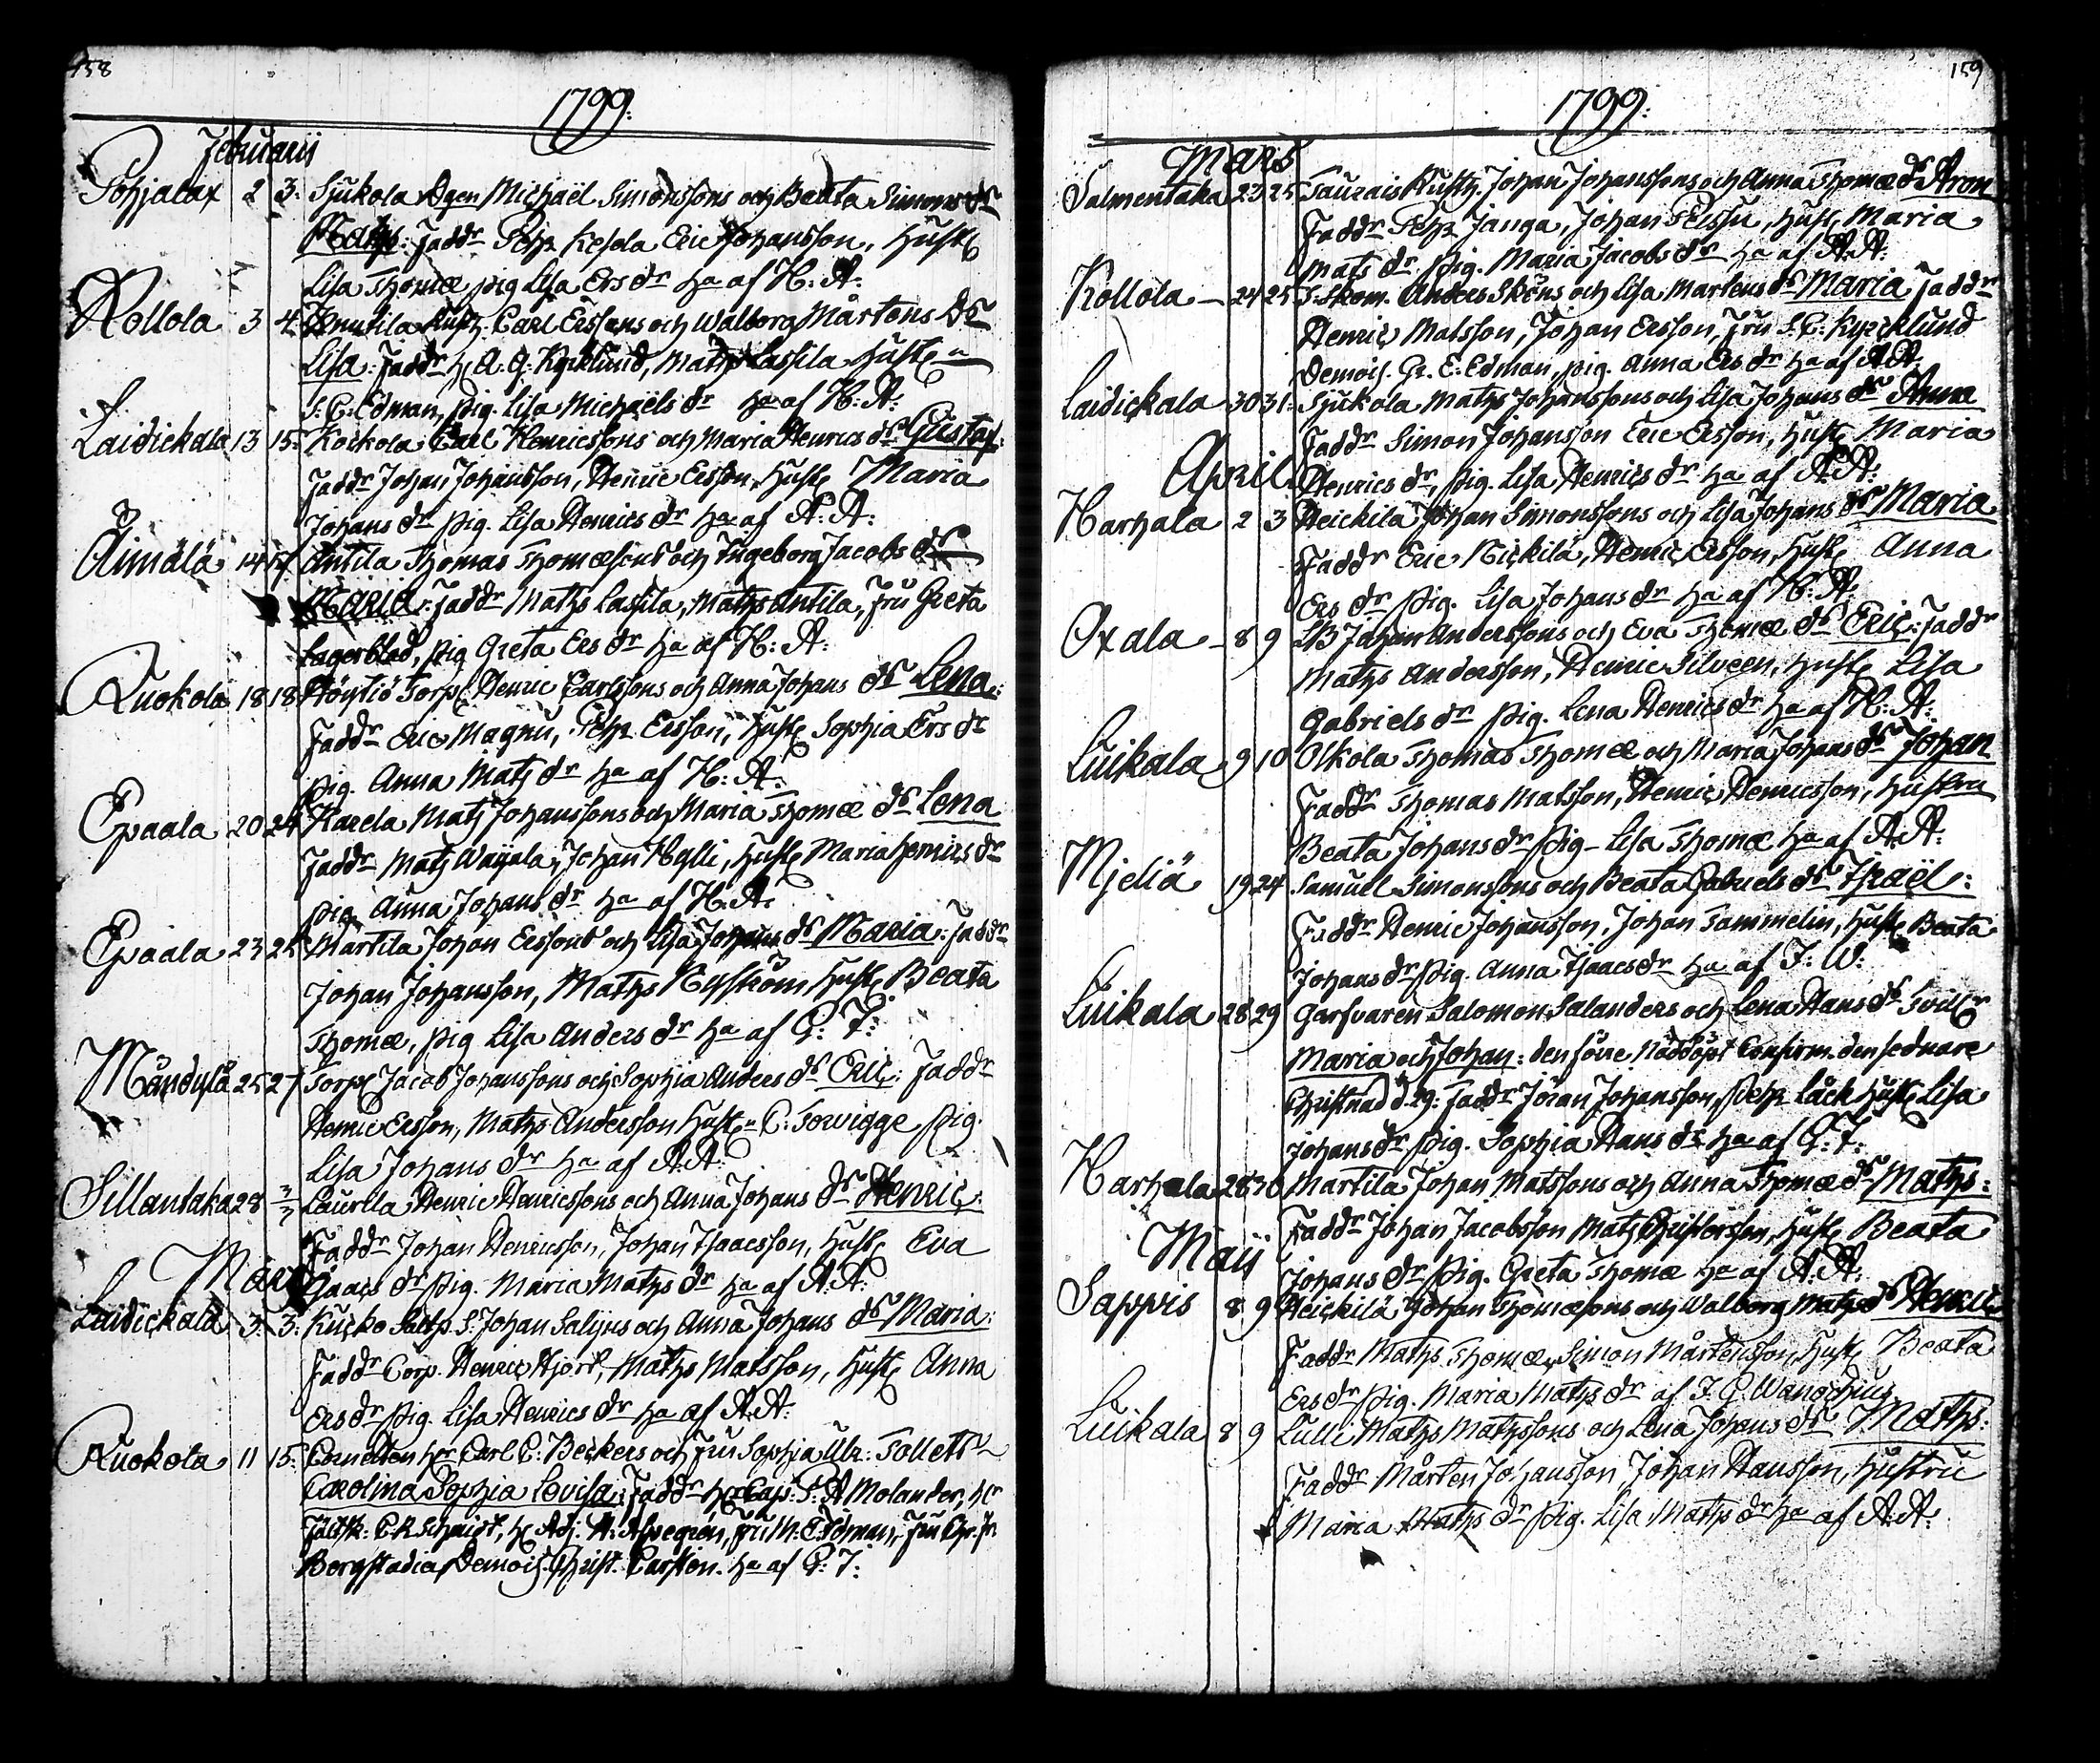 158
1799.
Februarii
Pohjalax 2 3. Sjukola Ägen Michaël Simonssons och Beata Simons dr
Maths: Faddr Pehr Kesola Eric Johansson, Hust.
Lisa Thomæ pig Lisa Ers dr ha af H: A:
Kollola 3 4. Knutila Rusth. Carl Erssons och Walborg Mårtens Dr
Lisa: Faddr H. A. G: Kyrklund, Maths Lassila Hust.
S: C: Edman, pig. Lisa Michaëls dr ha af H: A:
Laidickala 13 15. Kockola Carl Henricssons och Maria Henrics dr Gustaf:
Faddr Johan Johansson, Henric Ersson, Hust. Maria
Johans dr pig. Lisa Henrics dr ha af A: A:
Äimälä 14 17 Antila Thomas Thomæsons och Ingeborg Jacobs dr
Maria: Faddr Maths Lassila, Maths Antila, Fru Greta
Lagerblad, pig Greta Ers dr ha af H: A:
Kuokola 18 18 Höyliö Torp. Henric Carlssons och Anna Johans dr Lena:
Faddr Eric Magnu, Pehr Ersson, Hust. Sophia Ers dr
pig. Anna Mats dr ha af H: A:
Epaala 20 24 Karela Mats Johanssons och Maria Thomæ dr Lena
Faddr Mats Waijala, Johan Hylli, Hust. Maria Henrics dr
pig. Anna Johans dr ha af H: A:
Epaala 23 25 Martila Johan Erssons och Lisa Johans dr Maria: Faddr
Johan Johansson, Maths Nyström Hust. Beata
Thomæ, pig Lisa Anders dr ha af G: F:
25 27 Torp. Jacob Johanssons och Sophia Anders dr Eric: Faddr
Henric Ersson, Maths Andersson Hust. C: pig.
Lisa Johans dr ha af A: A:
Sillantaka 28 Laurila Henric Henricssons och Anna Johans dr Henric:
Faddr Johan Henricsson, Johan Isaacsson, Hust. Eva
Isaacs dr pig. Maria Maths dr ha af A: A:
Mars
Laidickala 3. 3. Kucko Johan och Anna Johans dr Maria:
Faddr Corp. Henric Hjort, Maths Matsson, Hust. Anna
Ers dr pig. Lisa Henrics dr ha af A: A:
Kuokola 11 15. Cornetten hr Carl C: Beckers och Fru Sophia Ulr: Tollett
Carolina Sophia Lovisa: Faddr Hr Cap: Molander, hr
C R Schmidt, H. Adj. Fru M: C Edman, Fru
Demois. Christ: Carsten. ha af G: F:
159
1799:
Mars
Salmentaka 23 25 Taurais Rusth. Johan Johanssons och Anna Thomæ dr Aron
Faddr Pehr Janga, Johan Perssu, Hust. Maria
Mats dr pig. Maria Jacobs dr ha af A: A:
Kollola 24 25 S: Skom. Anders Sköns och Lisa Mårtens dr Maria Faddr
Henric Matsson, Johan Ersson, Fru S: C: Kyrcklund
Demois. Gr. E: Edman, pig. Anna Ers dr ha af A A
Laidickala 30 31: Sjukola Maths Johanssons och Lisa Johans dr Anna
Faddr Simon Johansson Eric Ersson, Hust. Maria
Henrics dr, pig. Lisa Henrics dr ha af A: A:
April
Harhala 2 3 Heickilä Johan Simonssons och Lisa Johans dr Maria
Faddr Eric Kickilä, Henric Ersson, Hust. Anna
Ers dr pig. Lisa Johans dr ha af H: A:
Oxala 8 9 LB Johan Anderssons och Eva Thomæ dr Eric: Faddr
Maths Andersson, Henric Silveen, Hust. Lisa
Gabriels dr pig. Lena Henrics dr ha af H: A:
Luikala 9 10 Olkola Thomas Thomæ och Maria Johans dr Johan
Faddr Thomas Matsson, Henric Henricsson, Hustru
Beata Johans dr pig. Lisa Thomæ ha af A: A:
Mjeliä 19 24 Samuel Simonssons och Beata Gabriels dr Israël:
Faddr Henric Johansson, Johan Tammelin, Hust. Beata
Johans dr pig. Anna Isaacs dr ha af F: W:
Luikala 28 29 Garfvaren Salomon Salanders och Lena Hans dr Tvill.
Maria och Johan: den förre Nöddöpt Confirm. den sednare
Christnad d. 29: Faddr Jöran Johansson, Pehr Låck Hust. Lisa
Johans dr pig. Sophia Hans dr ha af G: F:
Harhala 28 30 Martila Johan Matssons och Anna Thomæ dr Maths:
Faddr Johan Jacobsson Mats Christersson, Hust. Beata
Johans dr pig. Greta Thomæ ha af A: A:
Maij
Sappis 8 9 Heickilä Johan Thomæsons och Walborg Maths dr Henric
Faddr Maths Thomæ, Simon Mårtensson, Hust. Beata
Ers dr pig. Maria Maths dr af F. G. Wanochius
Luikala 8 9 Lulli Maths Mathssons och Lena Johans dr Maths:
Faddr Mårten Johansson, Johan Hansson, Hustru
Maria Maths dr pig. Lisa Maths dr ha af A: A: